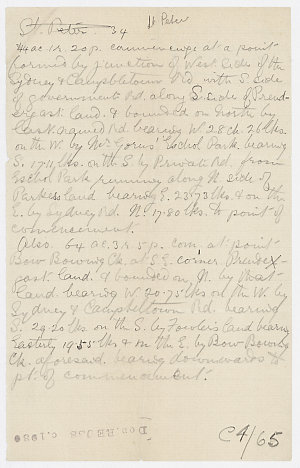 St. Peter 34 St Peter
44 ac. 1r. 20 p. commencing at a point
formed by junction of West Side of the
Sydney & Campbelltown Rd with S. side
of government Rd. along S. side of Prend-
ergast land. & bounded on North by
last named Rd. bearing W. 28 ch. 26 lks.
on the W. by Mr Eschol Park bearing
S. 17.11 lks. on the S. by Private Rd. from
Eschol Park running along N. side of
Parkers land bearing E. 23.73 lks & on the
E. by Sydney Rd. N. 17.80 lks. to point of
commencement.
Also. 64 ac. 3 r. 5 p. com. at point
Bow Bowing Ck. at S.E. corner Prender-
gast land & bounded on N. by that
land bearing W. 20.75 lks on the W. by
Sydney & Campbelltown Rd. bearing
S. 29.20 lks on the S. by Fowler's land bearing
Easterly 19.55 lks & on the E. by Bow Bowing
Ck. aforesaid bearing downwards to
pt. of commencement.
C4/65